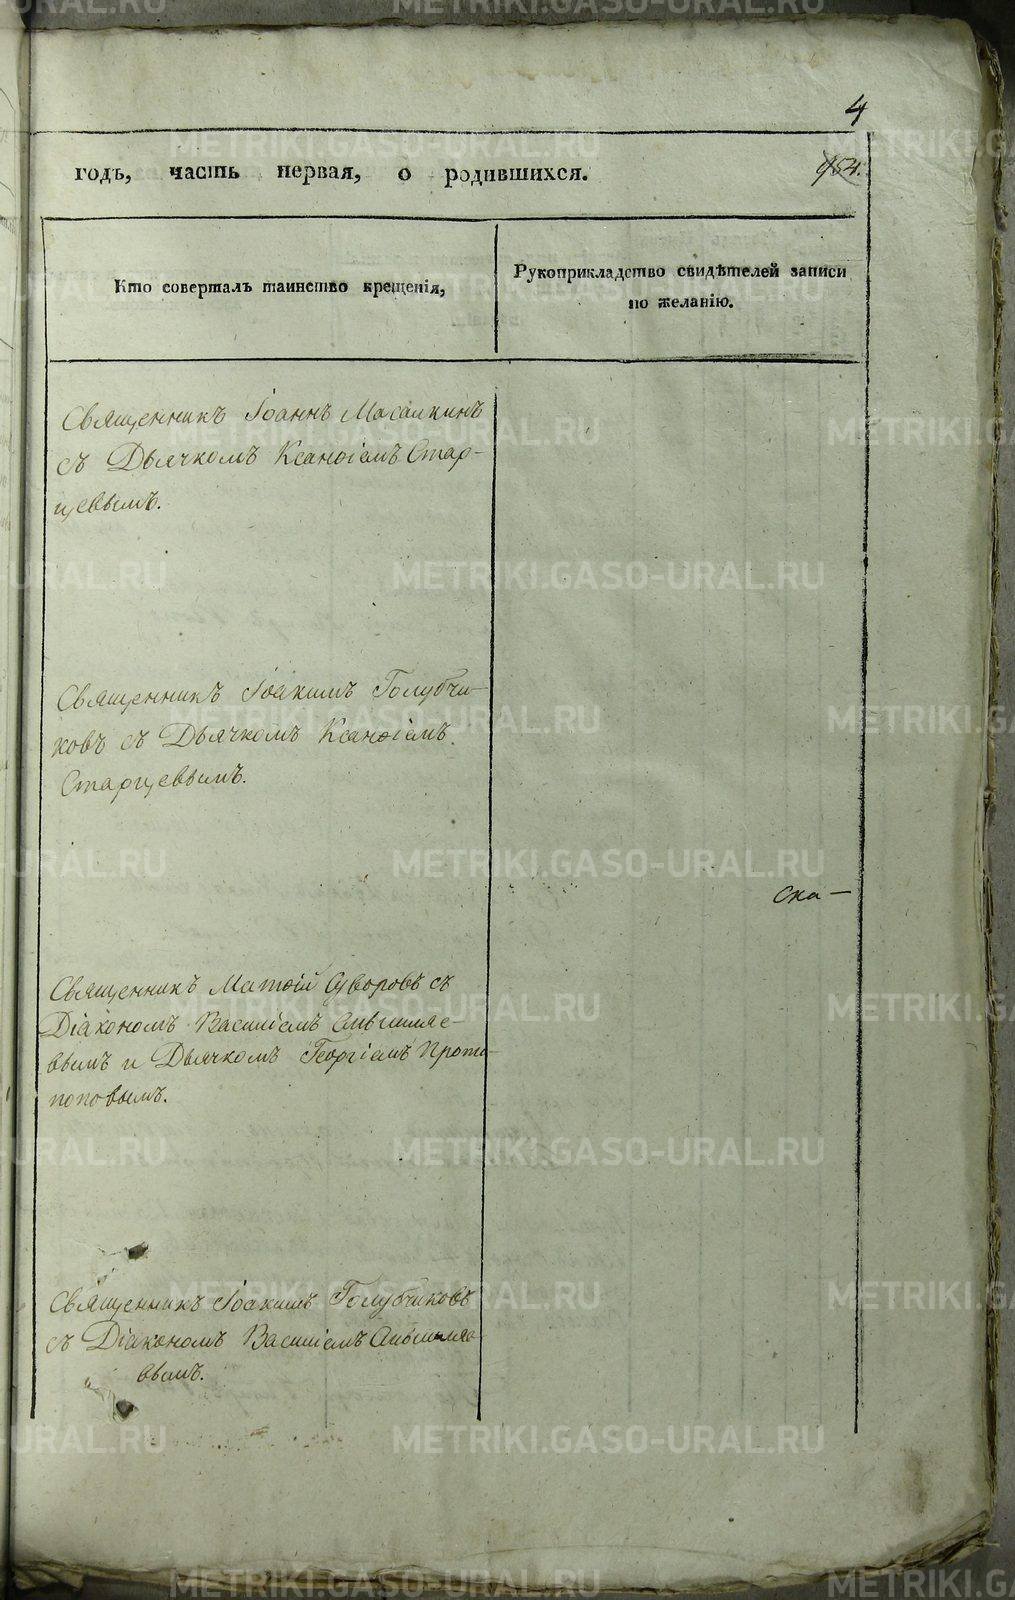 4
годъ, часть первая, о родившихся.
954.
Кто совершалъ таинство крещенія,
Рукоприкладство свидѣтелей записи
по желанію.
Священникъ Іоаннъ Масалкинъ
съ Дьячкомъ Ксанѳіемъ Стар-
цевымъ.
Священникъ Іоакимъ Голубчи-
ковъ съ Дьячкомъ Ксанѳіемъ
Старцевымъ.
ска-
Священникъ Матѳій Суворовъ съ
Діакономъ Василіемъ
вымъ и Дьячкомъ Георгіемъ Прото-
поповымъ.
Священникъ Іоакимъ Голубчиковъ
съ Діакономъ Василіемъ
вымъ.
METRIKI.GASO-URAL.RU